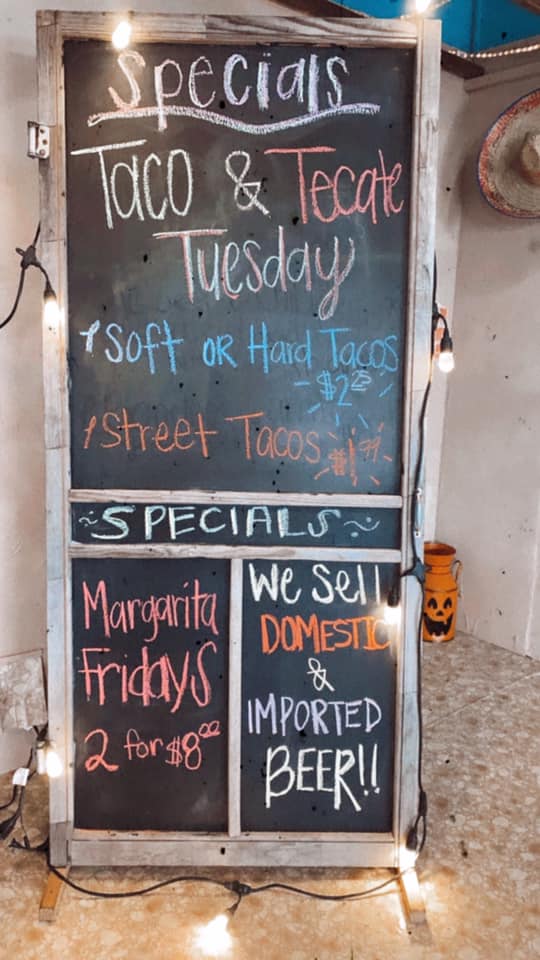 Specials
Taco & Tecate
Tuesday
1 Soft OR Hard Tacos
- $2.25
1 Street Tacos $1.99
~SPECIALS~
Margarita
Fridays
2 for $8.00
We Sell
DOMESTIC
&
IMPORTED
BEER!!